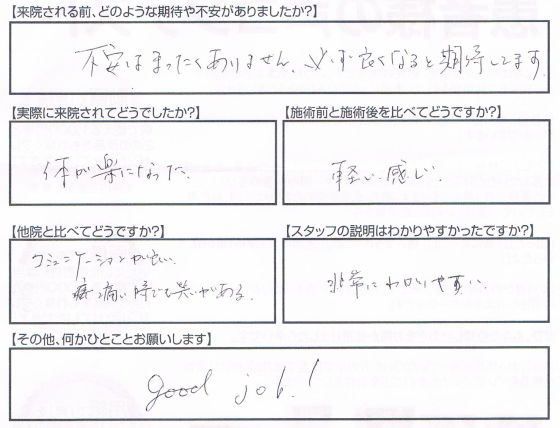 【来院される前、どのような期待や不安がありましたか?】
不安はまったくありません、必ず良くなると期待してます
【実際に来院されてどうでしたか?】
体が楽になった。
【施術前と施術後を比べてどうですか?】
軽い感じ。
【他院と比べてどうですか?】
コミュニケーションが良い。
痛い時でも笑いがある。
【スタッフの説明はわかりやすかったですか?】
非常にわかりやすい。
【その他、何かひとことお願いします】
good job!